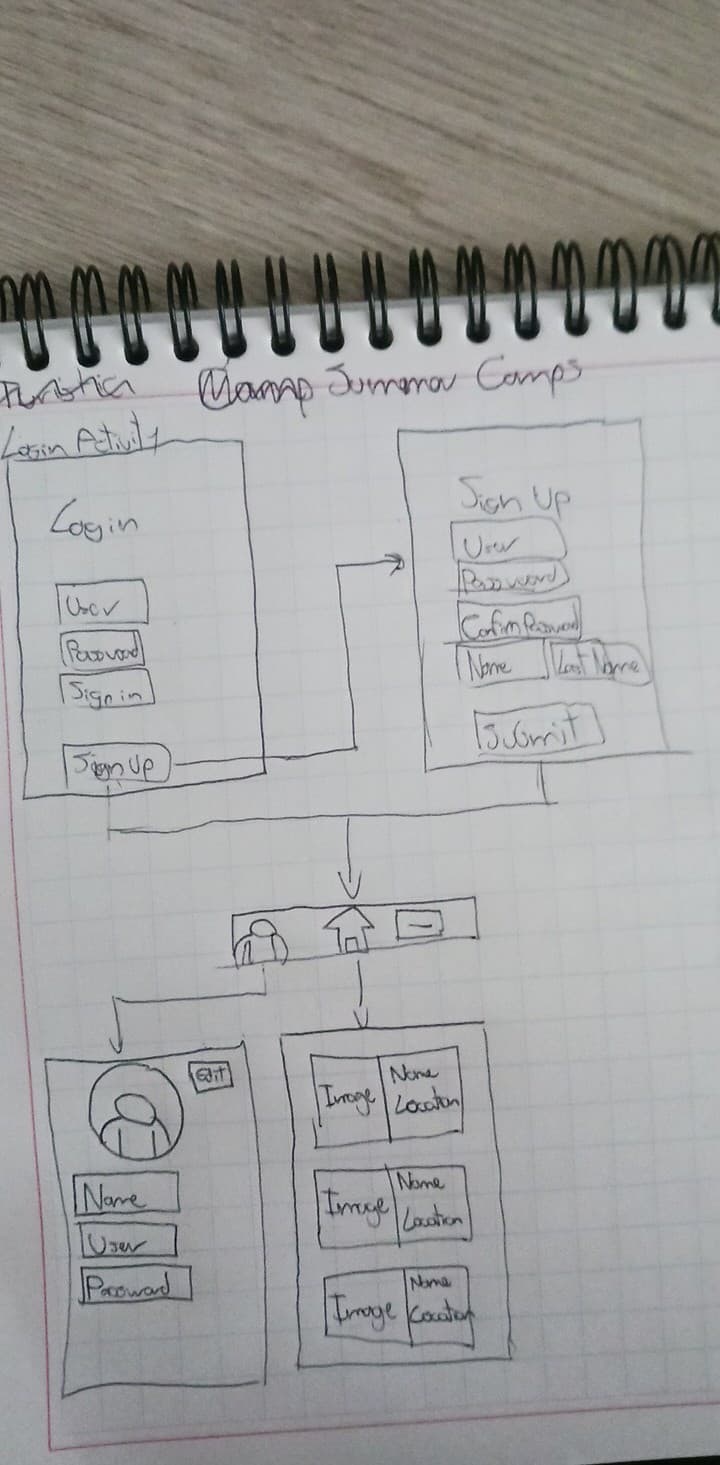 Camps
Login Activity
Login
User
Password
Sign in
Sign Up
Sign Up
User
Password
Confirm Password
Name Last Name
Submit
Edit
Name
User
Password
Image Name
Location
Image Name
Location
Image Name
Location